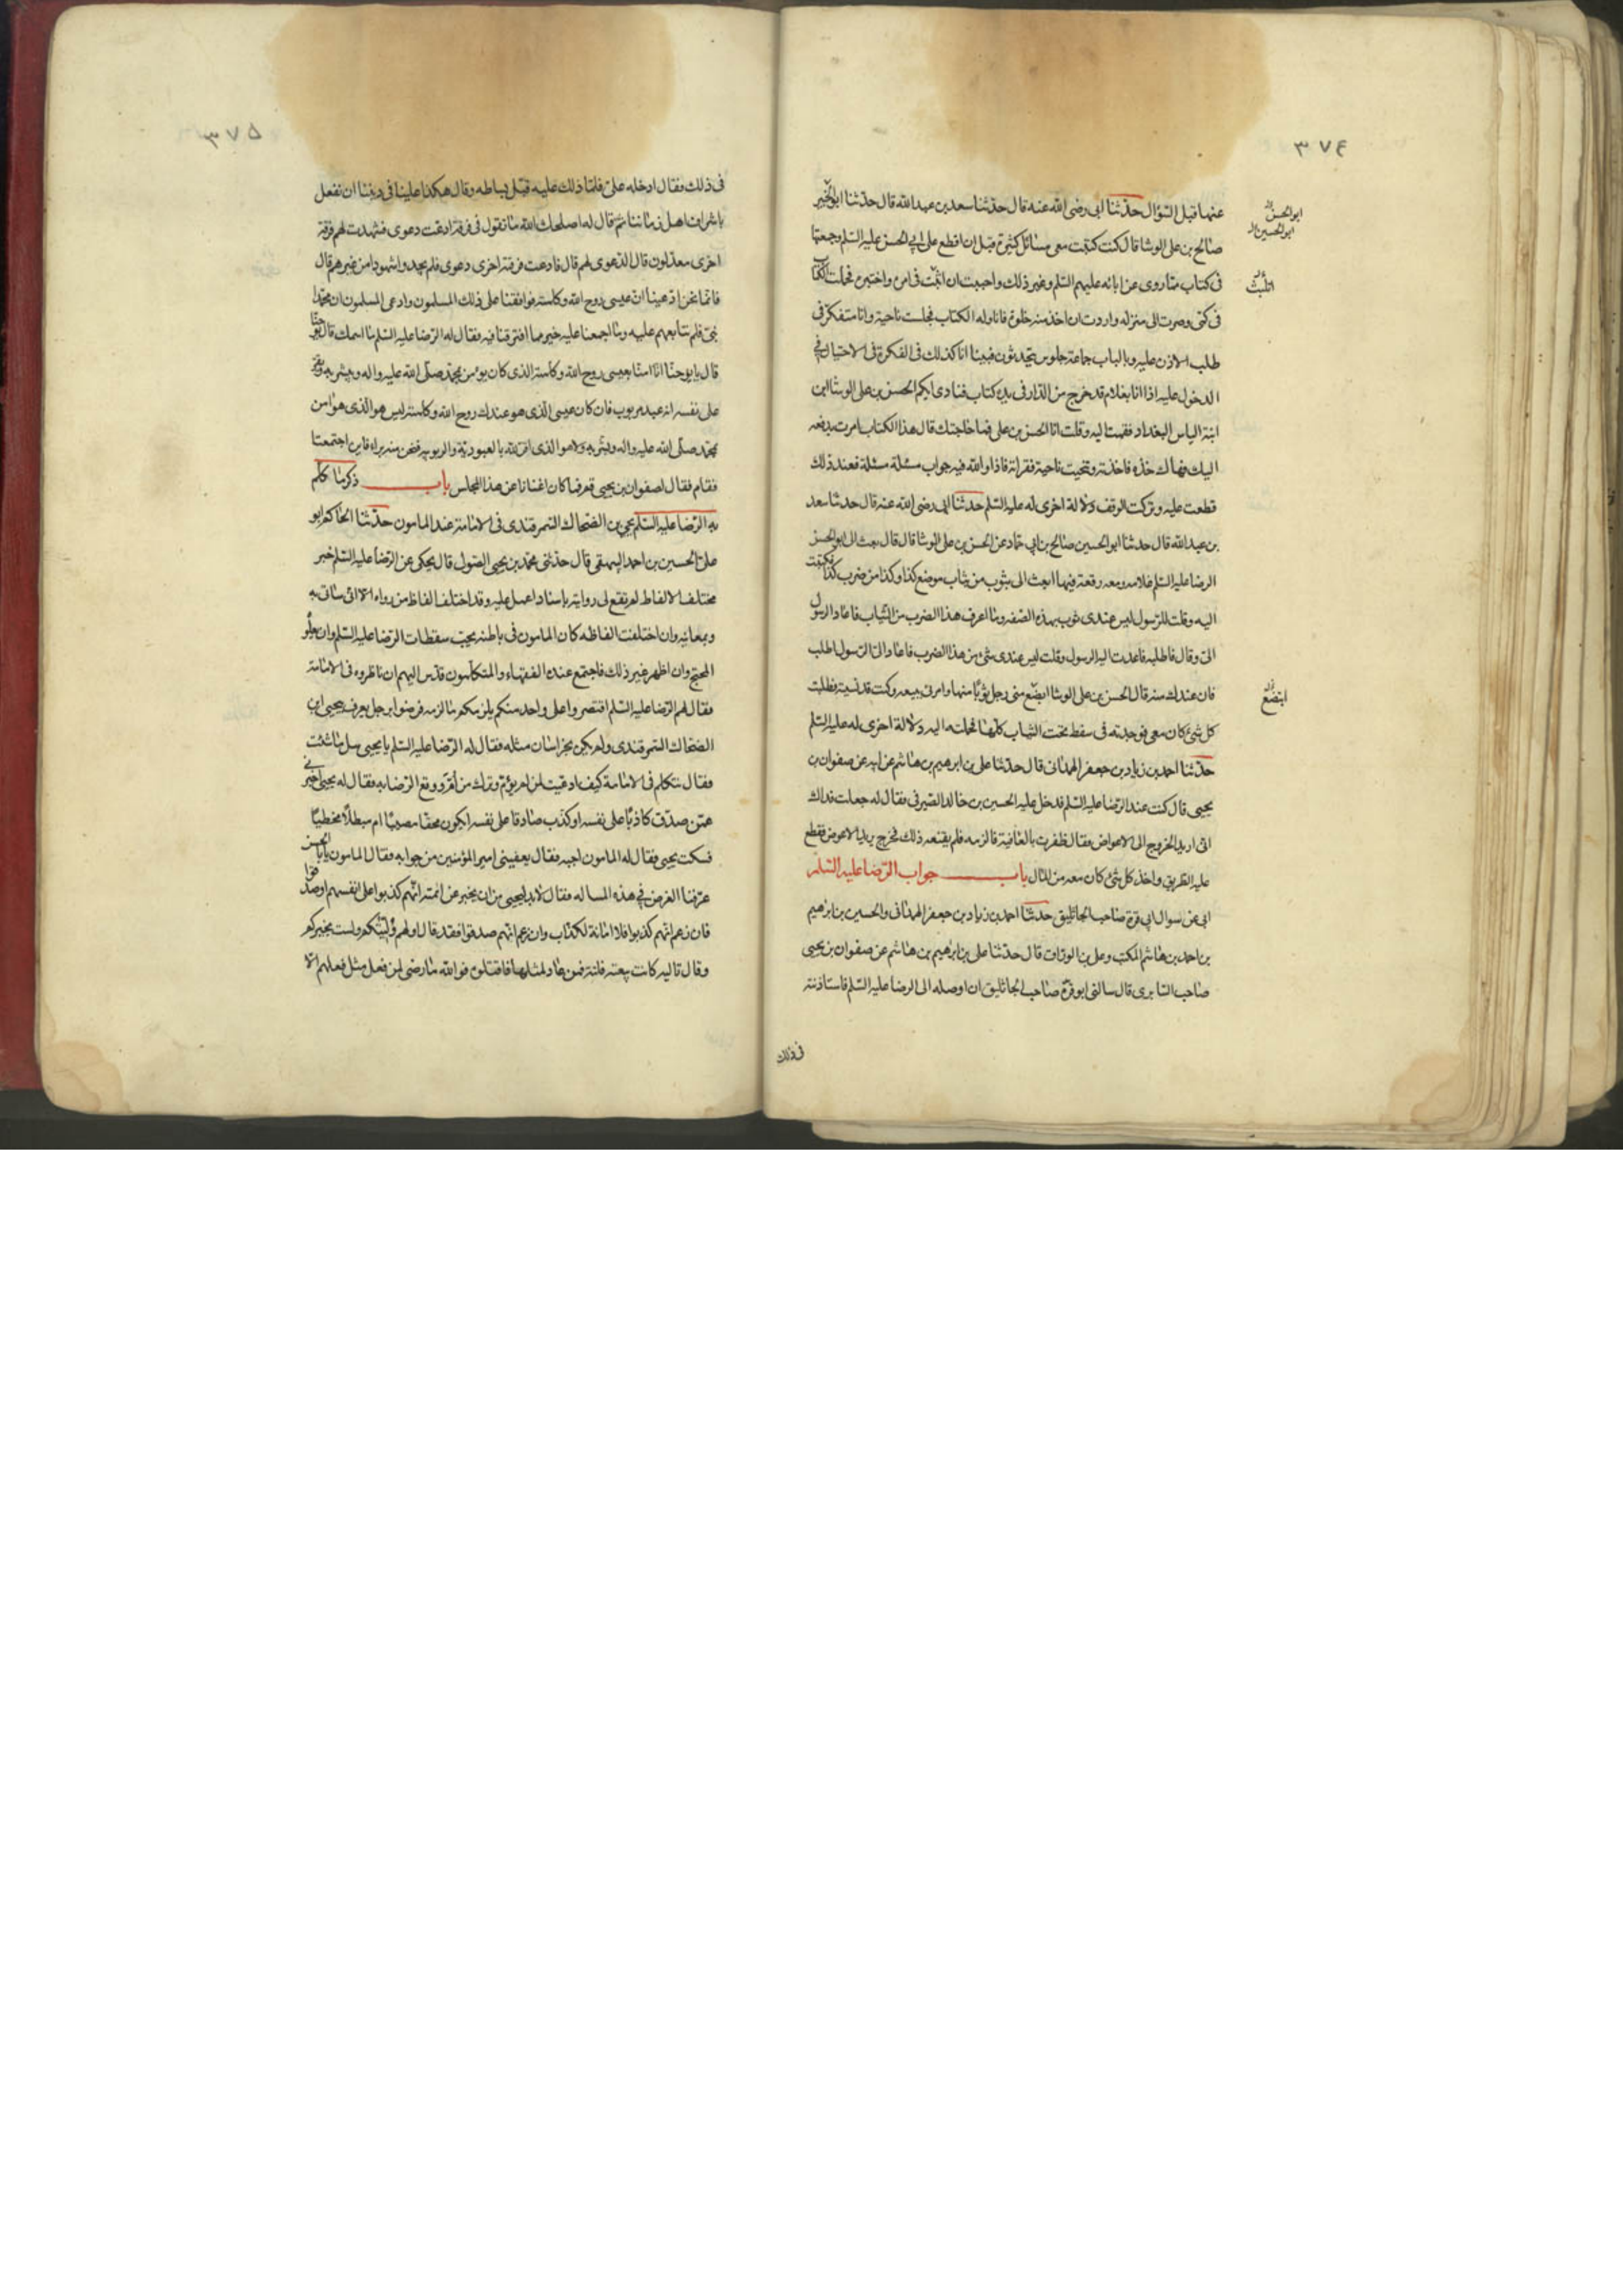 ٣٧٤
عنها قبل السؤال حدّثنا ابى رضى الله عنه قال حدّثنا سعد بن عبد الله قال حدّثنا ابو الخير
صالح بن على الوشا قال كنت كتبت معى مسائل كثيرة قبل ان اقطع على ابى الحسن عليه السّلم وجمعتها
فى كتاب مما روى عن ابائه عليهم السّلم وغير ذلك واحببت ان اثبّت فى امره واختبره فحملت الكتاب
فى كمّى وصرت الى منزله واردت ان اخذ منه خلوة فاناوله الكتاب فجلست ناحية وانا متفكر فى
طلب الاذن عليه وبالباب جماعة جلوس يتحدثون فبينا انا كذلك فى الفكرة فى الاحتيال فى
الدخول عليه اذا انا بغلام قد خرج من الدّار فى يده كتاب فنادى ايكم الحسن بن على الوشا ابن
ابنة الياس البغداد فقمت اليه وقلت انا الحسن بن على فما حاجتك قال هذا الكتاب امرت بدفعه
اليك فهاك خذه فاخذته وتنحيت ناحية فقراته فاذا والله فيه جواب مسئلة مسئلة فعند ذلك
قطعت عليه وتركت الوقف دلالة اخرى له عليه السّلم حدثنا ابى رضى الله عنه قال حدثنا سعد
بن عبد الله قال حدثنا ابو الحسين صالح بن ابى حماد عن الحسن بن على الوشا قال قال بعث الى ابو الحسن
الرضا عليه السّلم غلامه ومعه رقعة فيها ابعث الى بثوب من ثياب موضع كذا وكذا من ضرب كذا فكتبت
اليه وقلت للرّسول ليس عندى ثوب بهذه الصّفه وما اعرف هذا الضرب من الثّياب فاعاد الرسول
الىّ وقال فاطلبه فاعدت اليه الرسول وقلت ليس عندى شئ من هذا الضرب فاعاد الىّ الرّسول اطلب
فان عندك منه قال الحسن بن على الوشا ابضع منى رجل ثوبًا منها وامرنى ببيعه وكنت قد نسيته فطلبت
كل شئ كان معى فوجدته فى سفط تحت الثياب كلّها فحملته اليه دلالة اخرى له عليه السّلم
حدّثنا احمد بن زياد بن جعفر الهمدانى قال حدّثنا على بن ابرهيم بن هاشم عن ابيه عن صفوان بن
يحيى قال كنت عند الرّضا عليه السّلم فدخل عليه الحسين بن خالد الصّيرفى فقال له جعلت فداك
انى اريد الخروج الى الاعواض فقال ظفرت بالعافية فالزمه فلم يقنعه ذلك فخرج يريد الاعوض فقطع
عليه الطّريق واخذ كل شئ كان معه من المال باب جواب الرّضا عليه السّلم
ابى عن سوال ابى قرة صاحب الجاثليق حدثنا احمد بن زياد بن جعفر الهمدانى والحسين بن ابرهيم
بن احمد بن هاشم المكتب وعلى بن الوراق قال حدّثنا على بن ابرهيم بن هاشم عن صفوان بن يحيى
صاحب السّابرى قال سالنى ابو قرّة صاحب الجاثليق ان اوصله الى الرضا عليه السّلم فاستاذنته
فى ذلك
ابو الحسن
ابو الحسين
اتلبث
ابتضع
٣٧۵
فى ذلك فقال ادخله علىّ فلمّا دخل عليه قبّل بساطه وقال هكذا علينا فى ديننا ان نفعل
باشراف اهل زماننا ثم قال له اصلحك الله ما تقول فى فرقة ادعت دعوى فشهدت لهم فرقة
اخرى معدّلون قال الدّعوى لهم قال فادعت فرقة اخرى دعوى فلم يجدوا شهودا من غيرهم قال
فانّا نحن ادّعينا انّ عيسى روح الله وكلمته فوافقنا على ذلك المسلمون وادعى المسلمون ان محمّدا
نبىّ فلم نتابعهم عليه وما اجمعنا عليه خير مما افترقنا فيه فقال له الرّضا عليه السّلم ما اسمك قال يوحنّا
قال يا يوحنّا انّا امنّا بعيسى روح الله وكلمته الذى كان يومن بمحمّد صلّى الله عليه واله ويبشر به ويقرّ
على نفسه انه عبد مربوب فان كان عيسى الّذى هو عندك روح الله وكلمته ليس هو الذى هو امن
بمحمّد صلّى الله عليه واله وبشّر به ولا هو الذى اقرّ لله بالعبوديّة والربوبيه فنحن منه براء فاين اجتمعنا
فقام فقال لصفوان بن يحيى قم فما كان اغنانا عن هذا المجلس باب ذكر ما كلّم
به الرّضا عليه السّلم يحيى بن الضحاك السّمرقندى فى الامامة عند المامون حدّثنا الحاكم ابو
على الحسين بن احمد البيهقى قال حدّثنى محمّد بن يحيى الصّولى قال يحكى عن الرّضا عليه السّلم خبر
مختلف الالفاظ لم يقع لى روايته باسناد اعمل عليه وقد اختلف الفاظ من رواه الا انّى ساتى به
وبمعانيه وان اختلفت الفاظه كان المامون فى باطنه يحبّ سقطات الرّضا عليه السّلم وان يعلو
المحتج وان اظهر غير ذلك فاجتمع عنده الفقهاء والمتكلّمون فدّس اليهم ان ناظروه فى الامامة
فقال لهم الرّضا عليه السّلم اقتصروا على واحد منكم يلزمكم ما لزمه فرضوا برجل يعرف بيحيى بن
الضحاك السّمرقندى ولم يكن بخراسان مثله فقال له الرّضا عليه السّلم يا يحيى سل ما شئت
فقال نتكلم فى الامامة كيف ادعيت لمن لم يؤمّ وترك من امّ ووقع الرّضا به فقال له يحيى اخبرنى
عمّن صدّق كاذبًا على نفسه او كذّب صادقا على نفسه ايكون محقّا مصيبًا ام مبطلًا مخطيًا
فسكت يحيى فقال له المامون اجبه فقال يعفينى امير المؤمنين من جوابه فقال المامون يا ابا الحسن
عرّفنا الغرض فى هذه المساله فقال لا بدّ ليحيى من ان يخبر عن ائمته انّهم كذبوا على انفسهم او صدقوا
فان زعم انّهم كذبوا فلا امانة لكذّاب وان زعم انّهم صدقوا فقد قال اولهم وليّتكم ولست بخيركم
وقال تاليه كانت بيعته فلتة فمن عاد لمثلها فاقتلوه فوالله ما رضى لمن فعل مثل فعلهم الّا